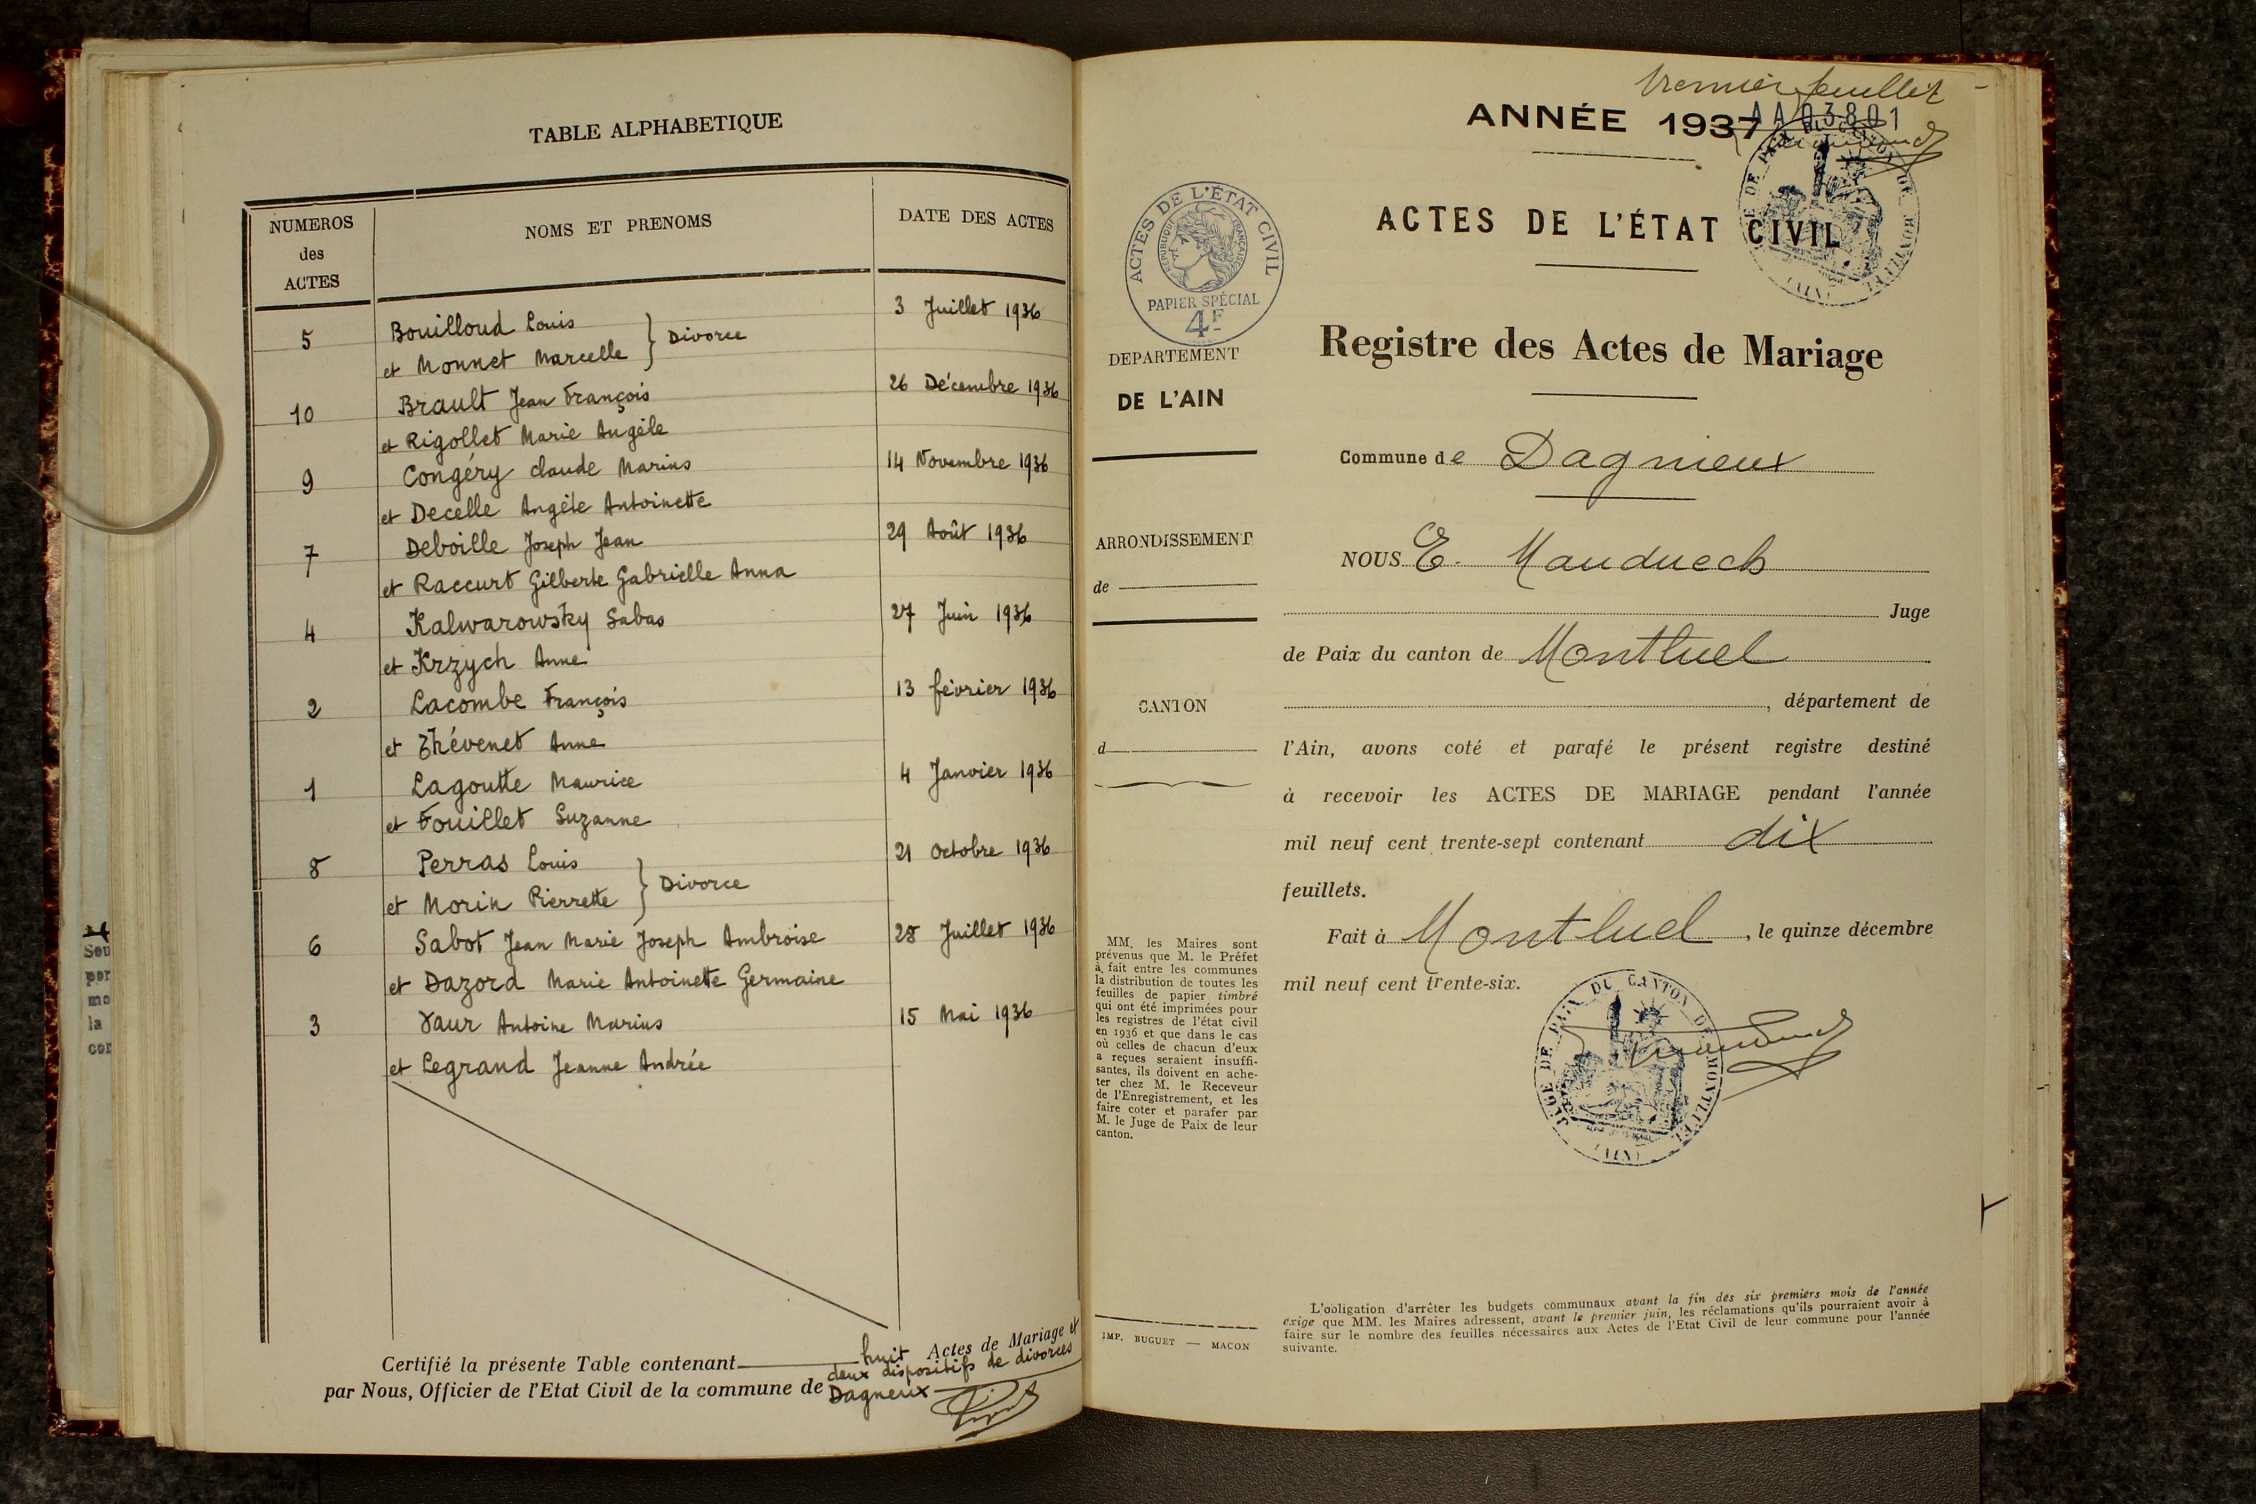 TABLE ALPHABETIQUE
NUMEROS des ACTES
NOMS ET PRENOMS
DATE DES ACTES
5 Bouilloud Louis 3 Juillet 1936
et Monnet Marcelle } Divorce
10 Brault Jean François 26 Décembre 1936
et Rigollet Marie Angèle
9 Congéry Claude Marius 14 Novembre 1936
et Decelle Angèle Antoinette
7 Deboille Joseph Jean 29 Août 1936
et Raccurt Gilberte Gabrielle Anna
4 Kalwarowsky Sabas 27 Juin 1936
et Krzych Anne
2 Lacombe François 13 février 1936
et Thévenet Anne
1 Lagoutte Maurice 4 Janvier 1936
et Fouillet Suzanne
8 Perras Louis 21 Octobre 1936
et Morin Pierrette } Divorce
6 Sabot Jean Marie Joseph Ambroise 28 Juillet 1936
et Dazord Marie Antoinette Germaine
3 Vaur Antoine Marius 15 Mai 1936
et Legrand Jeanne Andrée
Certifié la présente Table contenant huit Actes de Mariage et
deux dispositifs de divorces
par Nous, Officier de l'Etat Civil de la commune de Dagneux
Sou
per
mo
la
con
Premier feuillet
ANNÉE 1937
AA03801
ACTES DE L'ÉTAT CIVIL
ACTES DE L'ÉTAT CIVIL
RÉPUBLIQUE FRANÇAISE
PAPIER SPÉCIAL
4F
DEPARTEMENT
DE L'AIN
Registre des Actes de Mariage
Commune de Dagnieux
ARRONDISSEMENT
de
CANTON
d
NOUS E. Mauduech
Juge
de Paix du canton de Montluel
, département de
l'Ain, avons coté et parafé le présent registre destiné
à recevoir les ACTES DE MARIAGE pendant l'année
mil neuf cent trente-sept contenant dix
feuillets.
Fait à Montluel, le quinze décembre
mil neuf cent trente-six.
JUGE DE PAIX DU CANTON DE MONTLUEL
(AIN)
MM. les Maires sont
prévenus que M. le Préfet
a fait entre les communes
la distribution de toutes les
feuilles de papier timbré
qui ont été imprimées pour
les registres de l'état civil
en 1936 et que dans le cas
où celles de chacun d'eux
a reçues seraient insuffi-
santes, ils doivent en ache-
ter chez M. le Receveur
de l'Enregistrement, et les
faire coter et parafer par
M. le Juge de Paix de leur
canton.
IMP. BUGUET — MACON
L'obligation d'arrêter les budgets communaux avant la fin des six premiers mois de l'année
exige que MM. les Maires adressent, avant le premier juin, les réclamations qu'ils pourraient avoir à
faire sur le nombre des feuilles nécessaires aux Actes de l'Etat Civil de leur commune pour l'année
suivante.